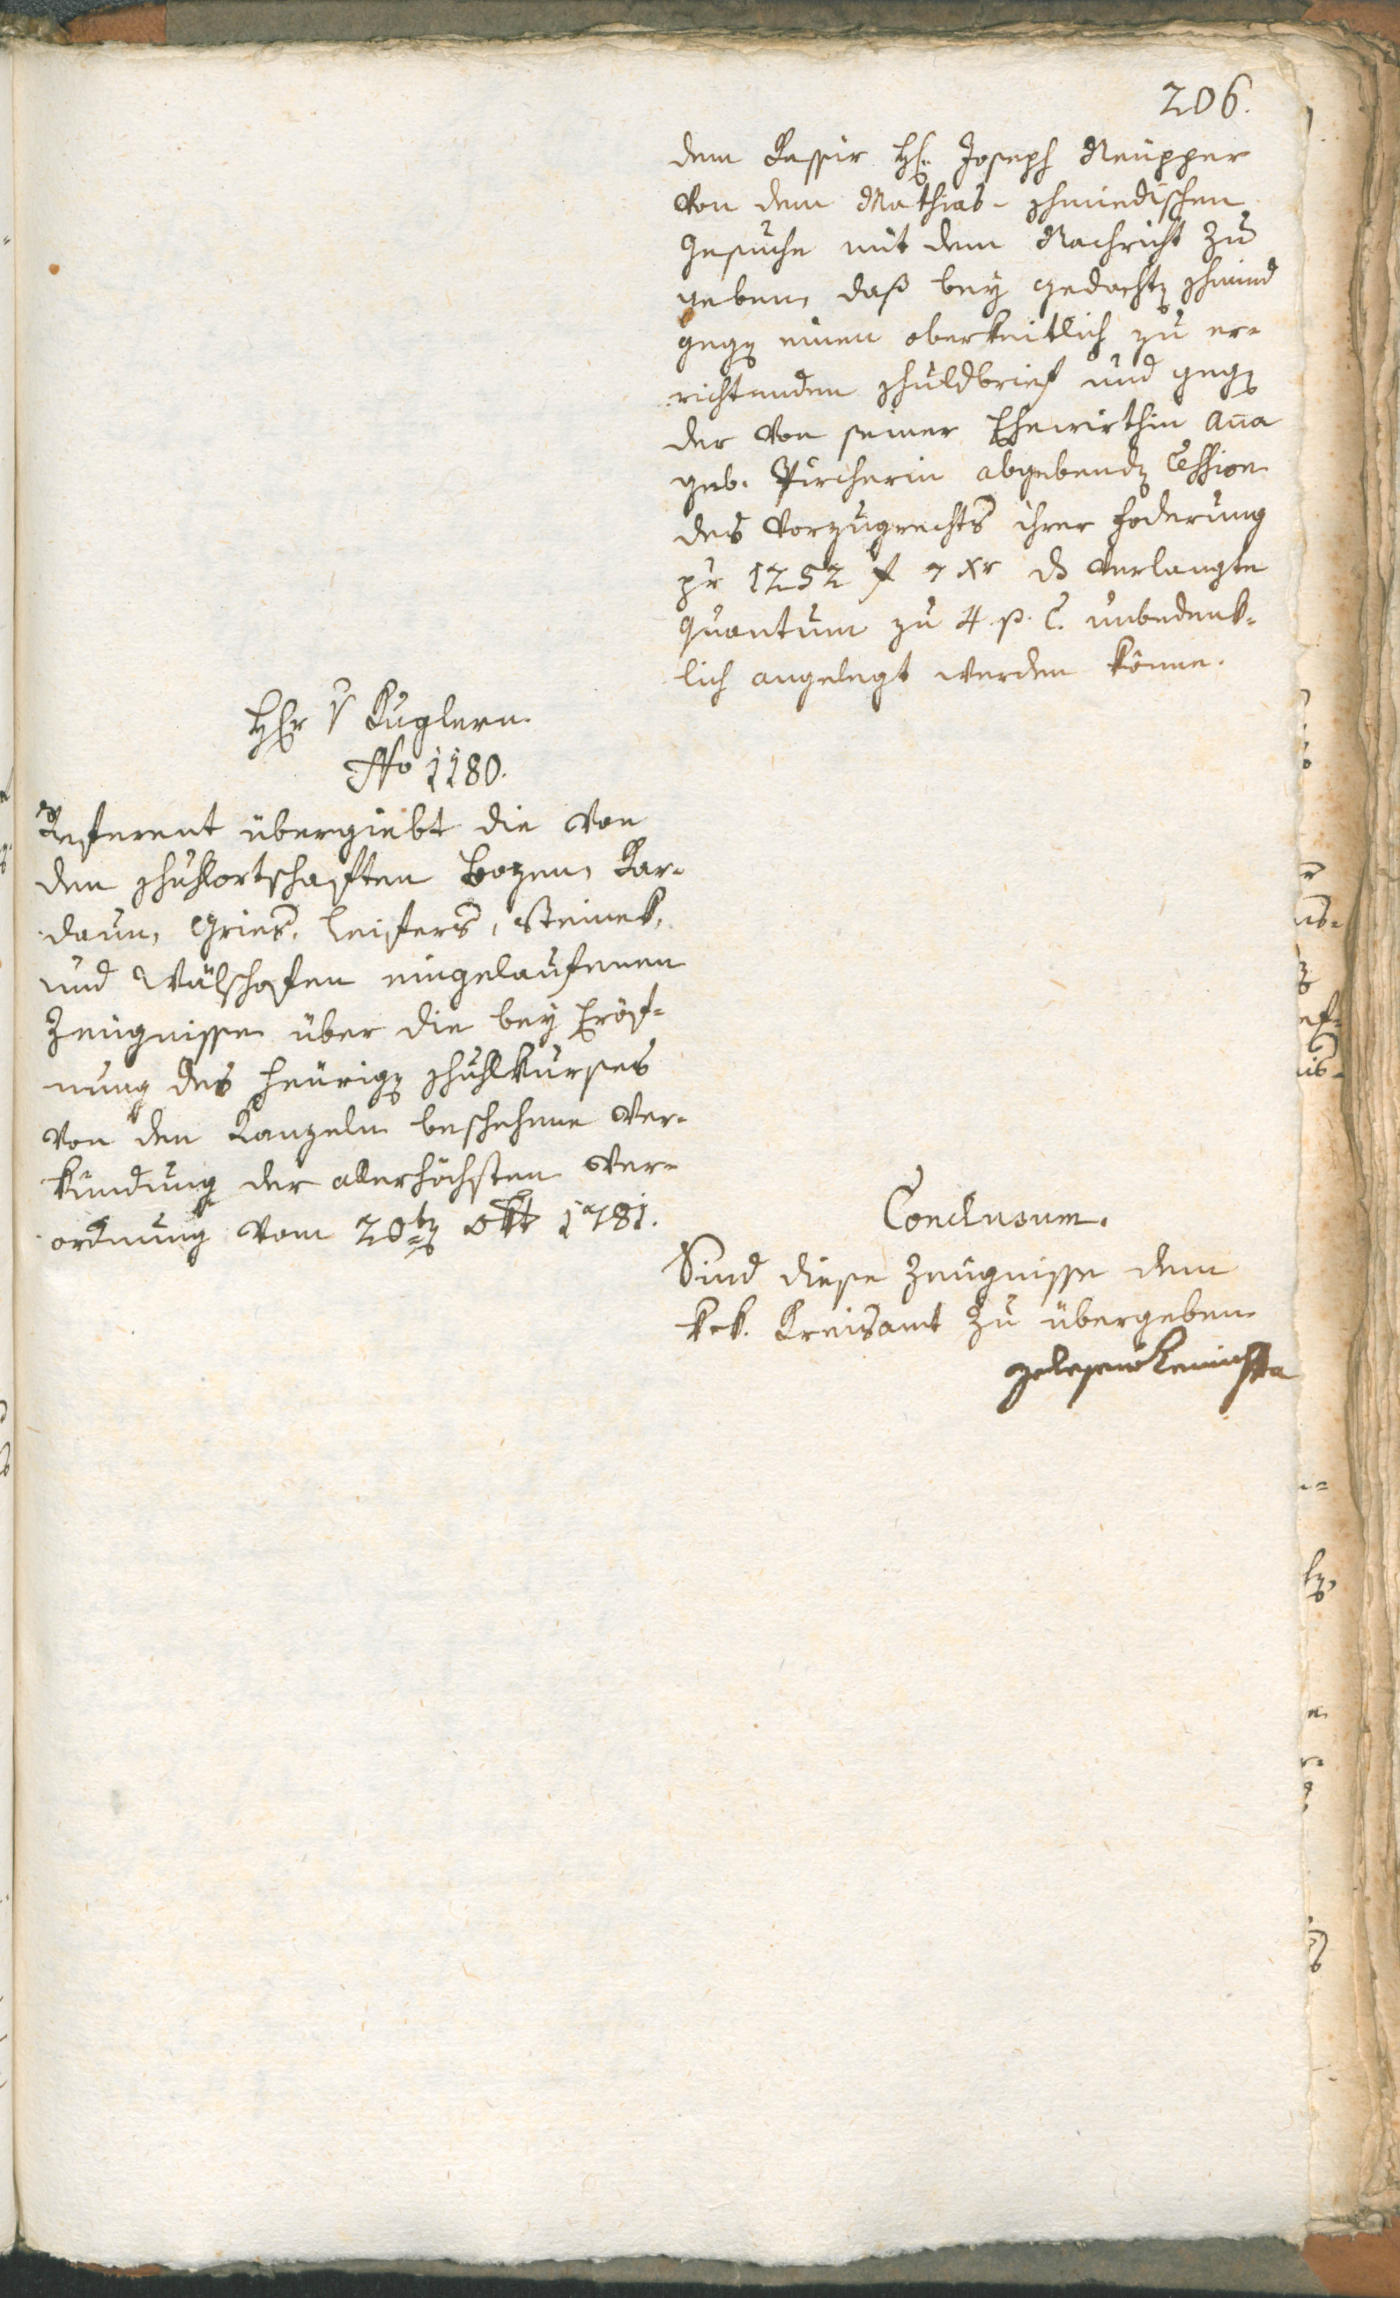 206.
dem Kassir H. Joseph Neupper
von dem Mathias-Schmiedischen
Gesuche mit dem Nachricht zu
geben, daß bey gedachten Schmid
gegen einen oberkeitlich zu er-
richtenden Schuldbrief und gegen
der von seiner Ehewirthin Anna
geb. Pircherin abgebenden Cession
des Vorzugrechts ihrer Foderung
pr 1252 f 7 xr das verlangte
Quantum zu 4 p. C. unbedenk-
lich angelegt werden könne.
Herr v Kuglern.
No 1180.
Referent übergiebt die von
den Schulortschaften Bozen, Kar-
daun, Gries, Leifers, Steinek,
und Wälschofen eingelaufenen
Zeugnisse über die bey Eröf-
nung des heurigen Schulkurses
von den Kanzeln beschehene Ver-
kündung der allerhöchsten Ver-
ordnung vom 20ten Okt 1781.
Conclusum.
Sind diese Zeugnisse dem
k.k. Kreisamt zu übergeben.